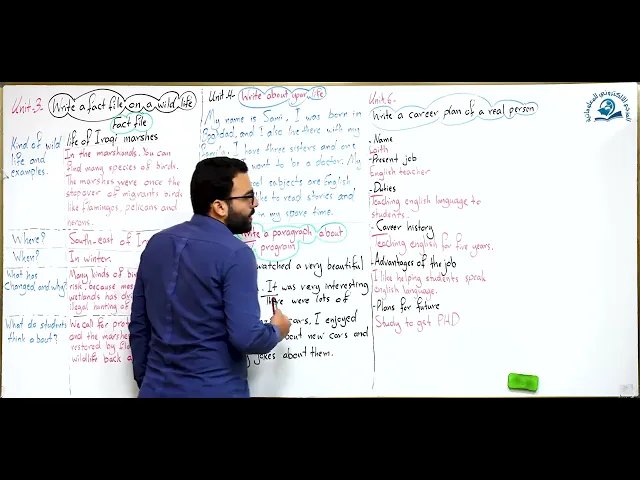 Unit.3- Write a fact file on a wild life
fact file
Kind of wild life and examples.
life of Iraqi marshes
In the marshlands. You can
find many species of birds.
The marshes were once the
stopover of migrants birds
like flamingos, pelicans and
herons.
Where?
South-east of
When?
In winter.
What has
changed and why?
Many kinds of
risk, because
wetlands has
illegal hunting of
What do students
think about?
We call for
and the marshes
restored by
wildlife back
Unit 4- Write about your life
My name is Sami, I was born in
and I also live there with my
I have three sisters and one
work to be a doctor. My
subjects are English
to read stories and
in my spare time.
a paragraph about
program
watched a very beautiful
It was very interesting
were lots of
cars, I enjoyed
about new cars and
jokes about them.
Unit.6-
Write a career plan of a real person
-Name
Laith
-Present job
English teacher
-Duties
Teaching english language to
students.
-Career history
Teaching english for five years.
-Advantages of the job
I like helping students speak
english language.
-Plans for future
Study to get PHD